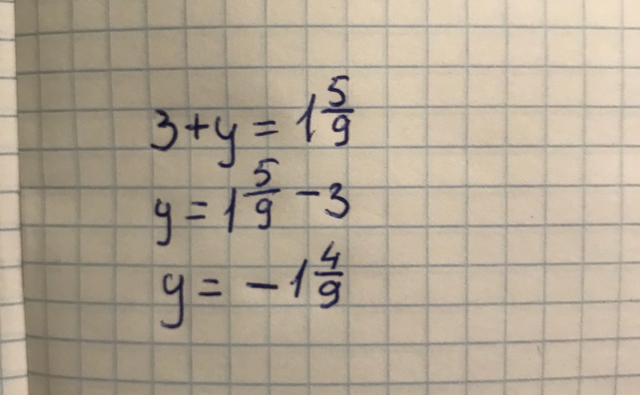 3 + y = 1 5/9
y = 1 5/9 - 3
y = - 1 4/9